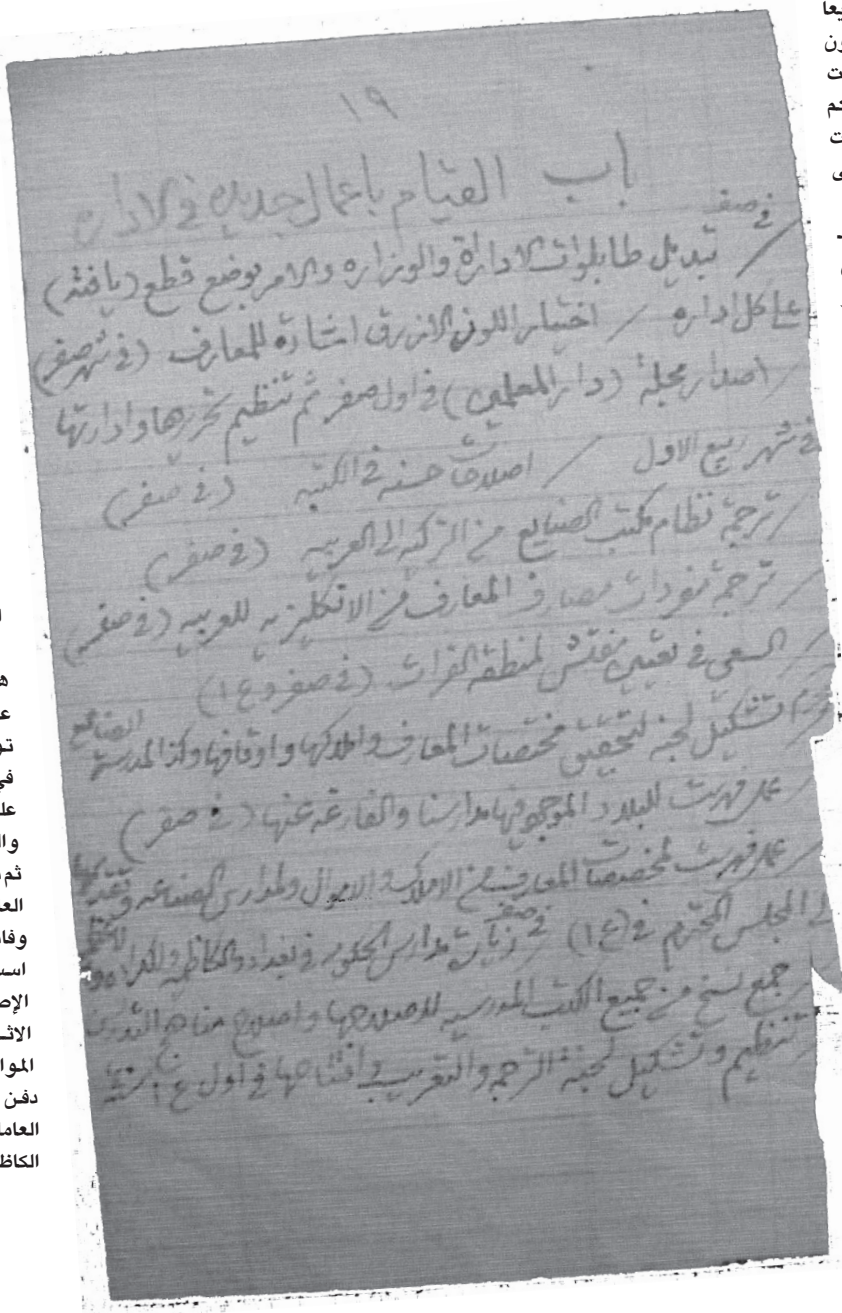 يعا
ون
ت
ضم
ت
ى
١٩
باب القيام باعمال جديده في الاداره
في صفر
/ تبديل طابلوات الادارة والوزاره والامر بوضع قطع (يافته)
على كل اداره / اختيار اللون الازرق اشارة للمعارف (في شهر صفر)
/ اصدار مجلة (دار المعلمين) في اول صفر ثم تنظيم تحريرها وادارتها
في شهر ربيع الاول / اصلاحات حسنه في الكتبه (في صفر)
/ ترجمة نظام مكتب الصنايع من التركيه الى العربيه (في صفر)
/ ترجمة مفردات مصارف المعارف من الانكليزيه للعربيه (في صفر)
/ السعي في تعيين مفتش لمنطقة الفرات (في صفر و ع ١)
تشكيل لجنه لتحقيق مختصات المعارف واملاكها واوقافها وكذا المدرسة
الصنائع
/ عمل فهرست للبلاد الموجود فيها مدارسنا والفارغه عنها (في صفر)
/ عمل فهرست لمخصصات المعارف من الاملاك والاموال ولمدارس الصناعه وتقديمها
الى المجلس المحترم في (ع ١) / في صفر زيارة مدارس الحكومه في بغداد والكاظميه والكراده
/ جمع نسخ من جميع الكتب المدرسيه لاصلاحها واصلاح مناهج التدريس
/ تنظيم وتشكيل لجنة الترجمه والتعريب وافتتاحها في اول ع ١
ه
عـ
تو
في
علـ
والـ
ثم
العـ
وفا
اسـ
الإصـ
الاثـ
الموا
دفن
العاما
الكاظ